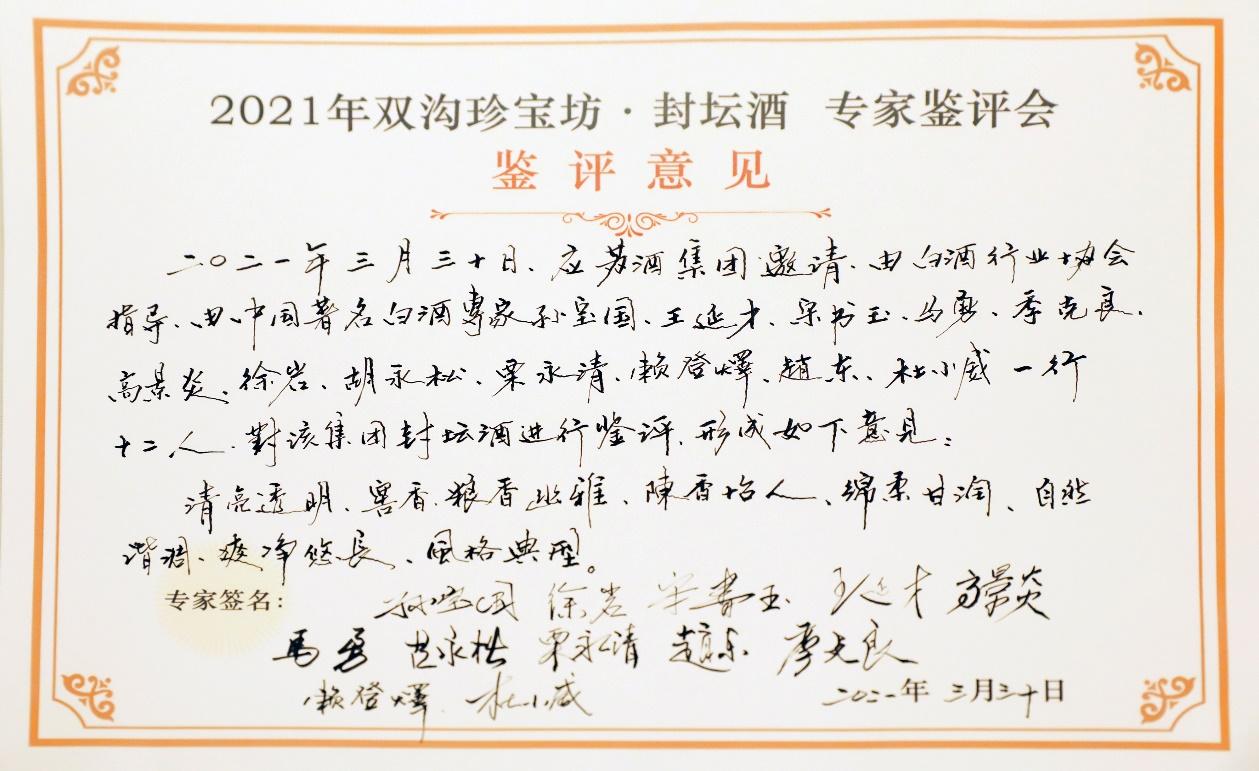 2021年双沟珍宝坊·封坛酒 专家鉴评会
鉴评意见
二〇二一年三月三十日、应苏酒集团邀请、由白酒行业协会
指导、由中国著名白酒專家孙宝国、王延才、宋书玉、马勇、季克良、
高景炎、徐岩、胡永松、栗永清、赖登燡、趙东、杜小威一行
十二人、對该集团封坛酒进行鉴评,形成如下意見:
清亮透明、窖香、粮香幽雅、陳香怡人、绵柔甘润、自然
谐调、爽净悠長、風格典型。
专家签名: 孙宝国 徐岩 宋書玉 王延才 高景炎
馬勇 胡永松 栗永清 趙东 季克良
赖登燡 杜小威 二〇二一年三月三十日